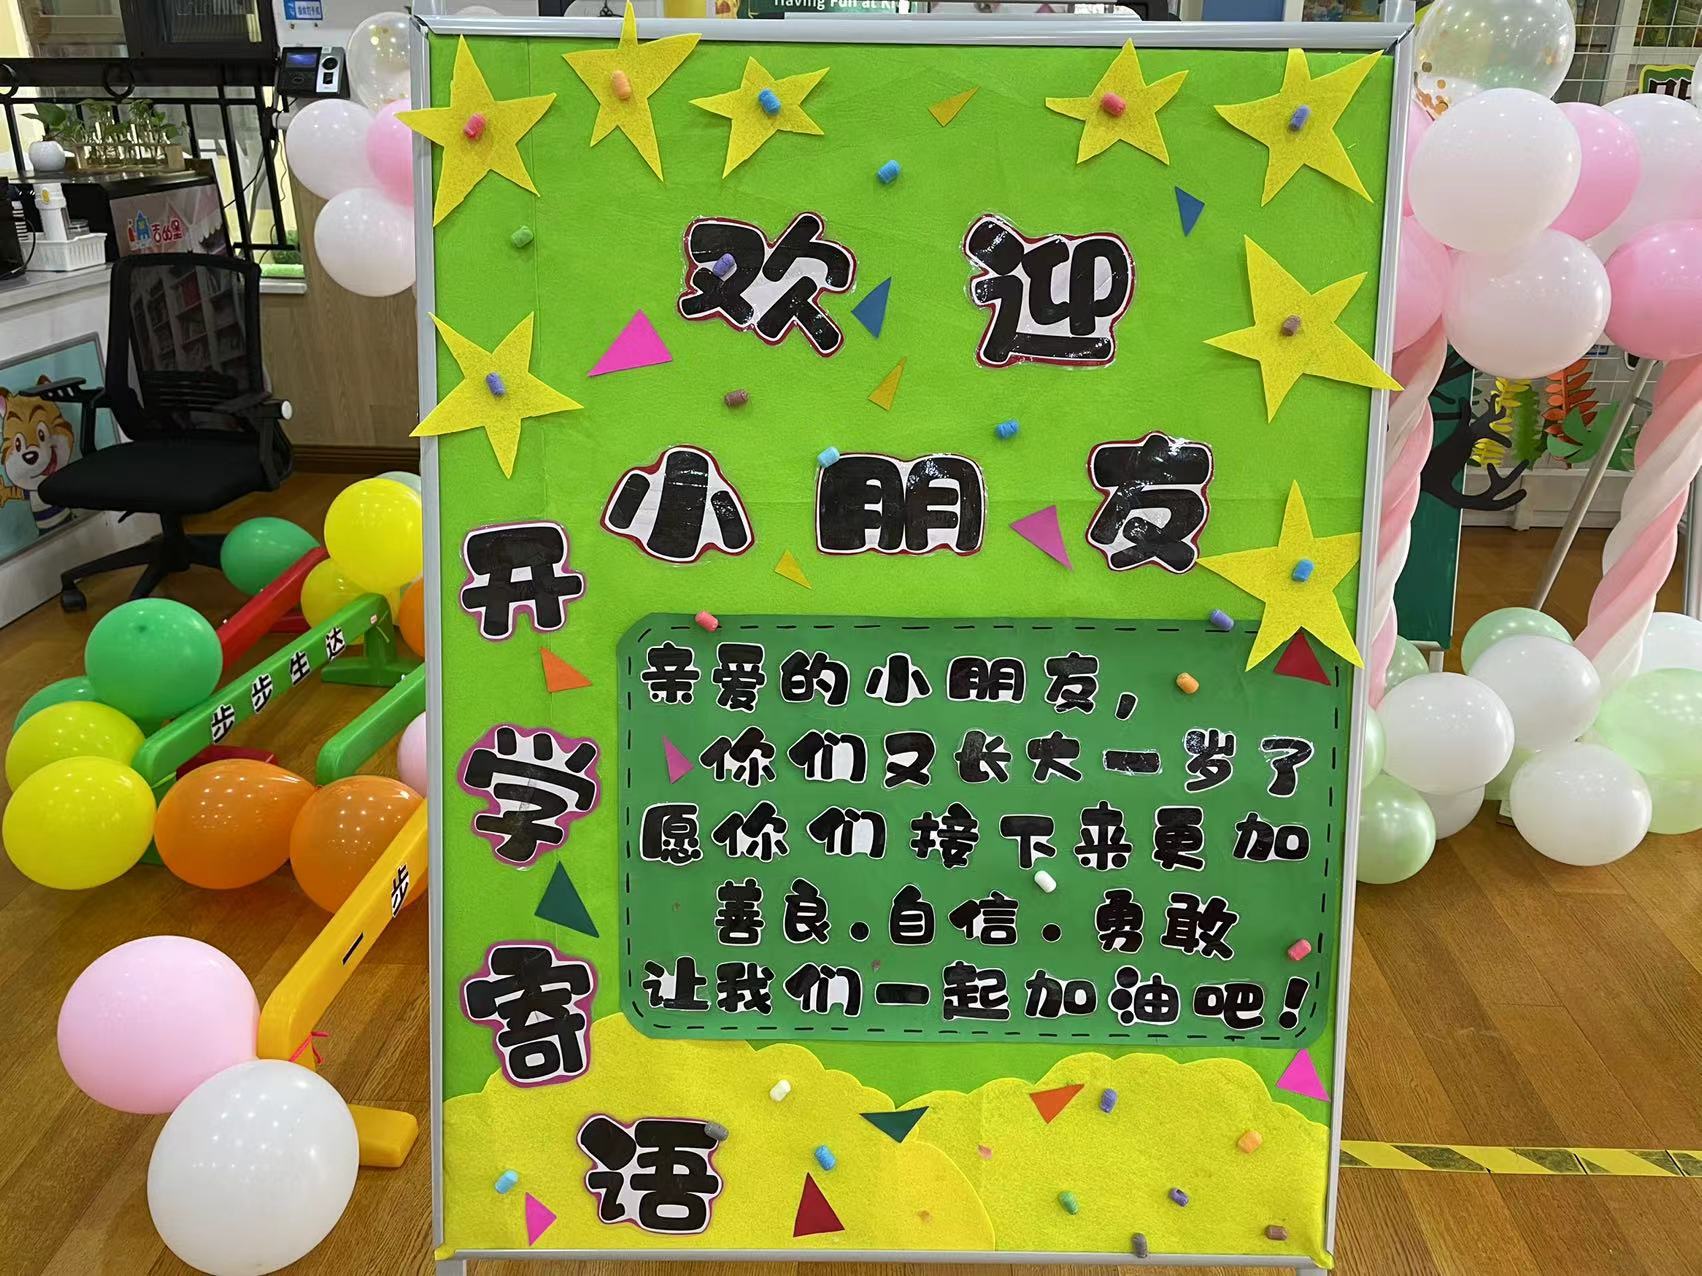 Having Fun at
欢迎
小朋友
开学寄语
亲爱的小朋友，
你们又长大一岁了
愿你们接下来更加
善良.自信.勇敢
让我们一起加油吧！
步步生达
一步